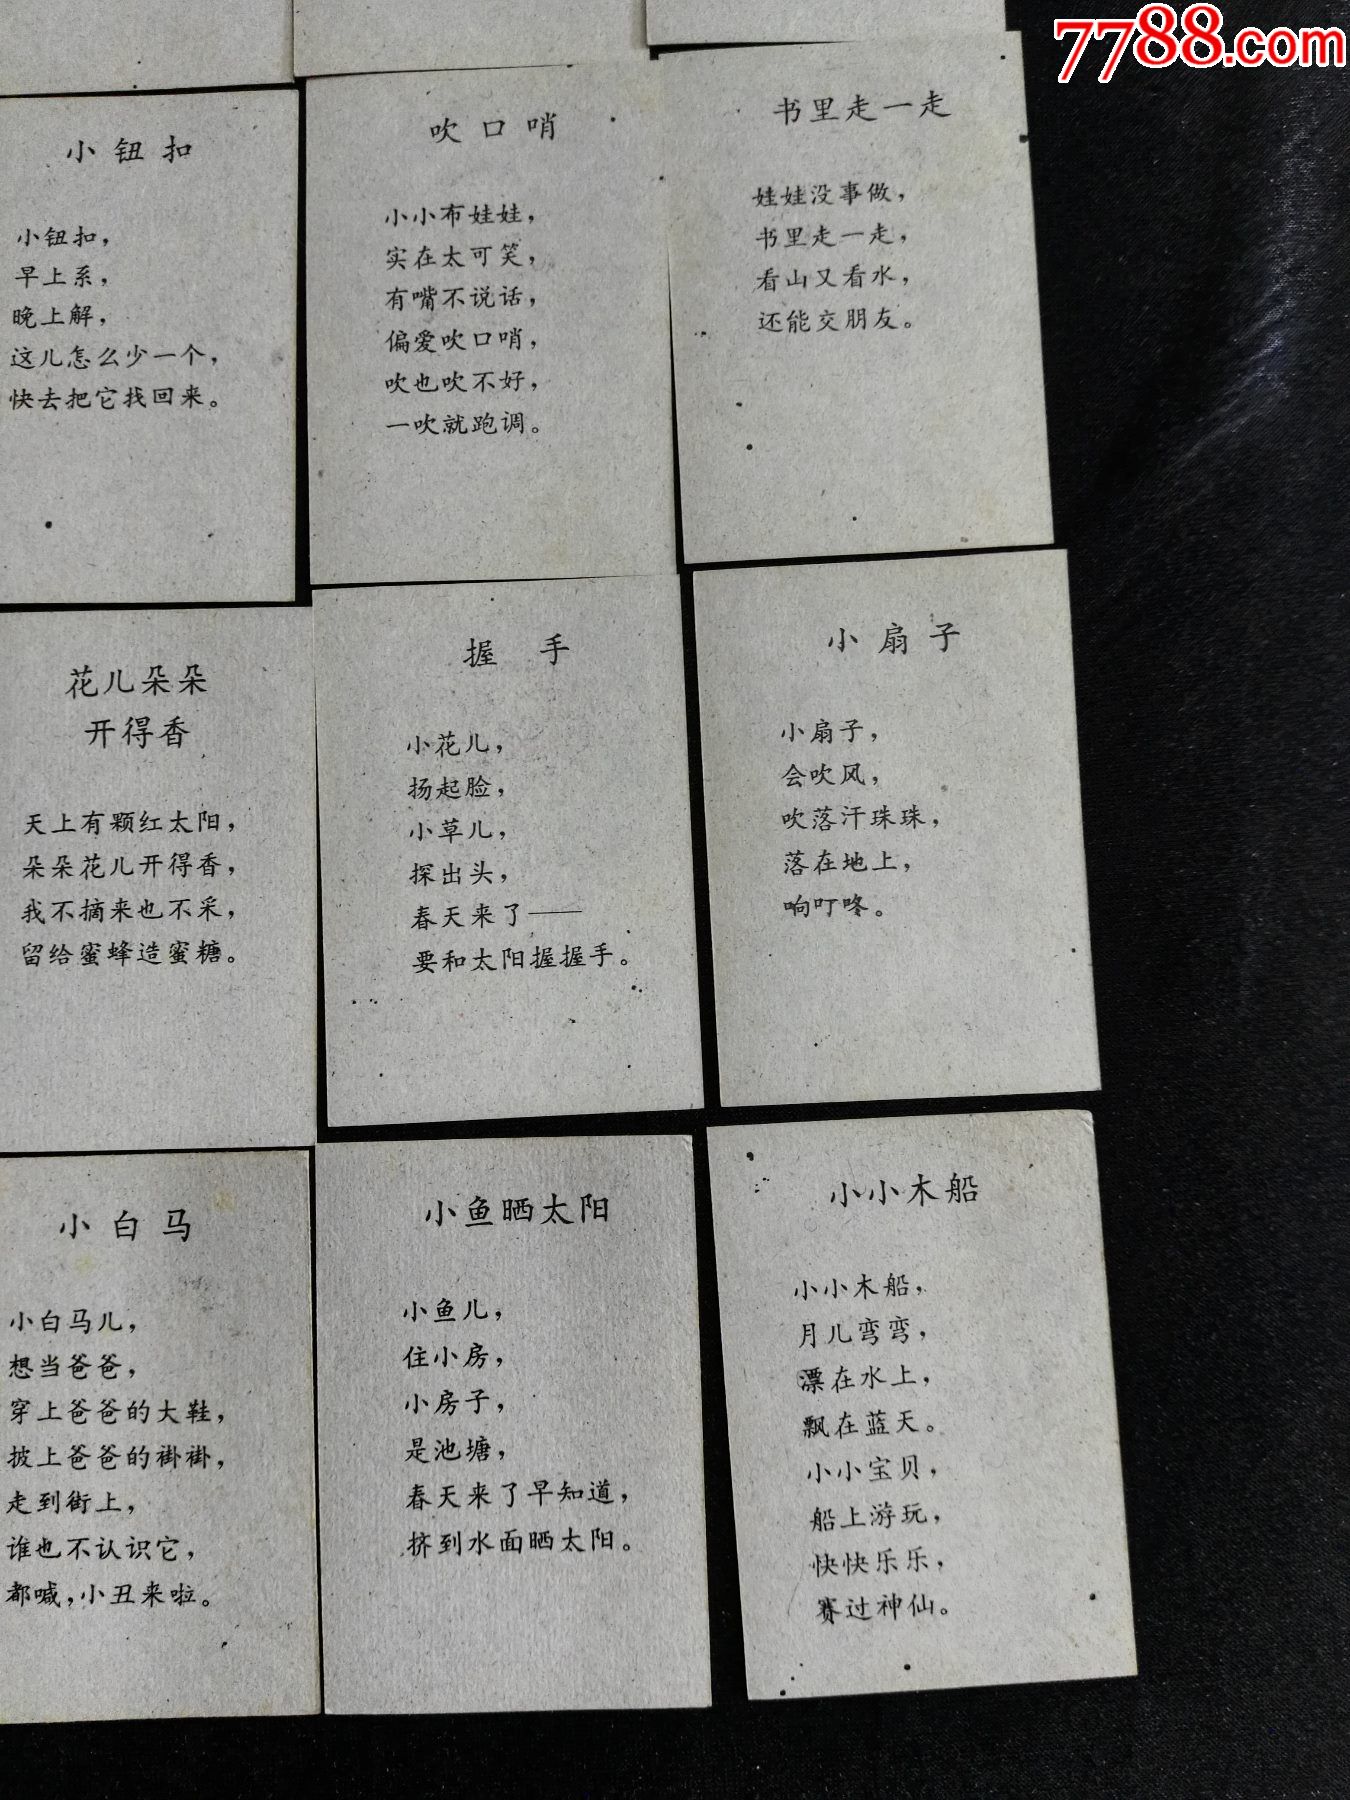 7788.com
小钮扣
小钮扣，
早上系，
晚上解，
这儿怎么少一个，
快去把它找回来。
吹口哨
小小布娃娃，
实在太可笑，
有嘴不说话，
偏爱吹口哨，
吹也吹不好，
一吹就跑调。
书里走一走
娃娃没事做，
书里走一走，
看山又看水，
还能交朋友。
花儿朵朵
开得香
天上有颗红太阳，
朵朵花儿开得香，
我不摘来也不采，
留给蜜蜂造蜜糖。
握手
小花儿，
扬起脸，
小草儿，
探出头，
春天来了——
要和太阳握握手。
小扇子
小扇子，
会吹风，
吹落汗珠珠，
落在地上，
响叮咚。
小白马
小白马儿，
想当爸爸，
穿上爸爸的大鞋，
披上爸爸的褂褂，
走到街上，
谁也不认识它，
都喊，小丑来啦。
小鱼晒太阳
小鱼儿，
住小房，
小房子，
是池塘，
春天来了早知道，
挤到水面晒太阳。
小小木船
小小木船，
月儿弯弯，
漂在水上，
飘在蓝天。
小小宝贝，
船上游玩，
快快乐乐，
赛过神仙。